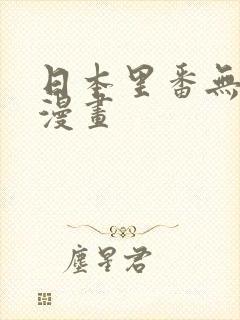 日本里番無
漫畫
塵星君